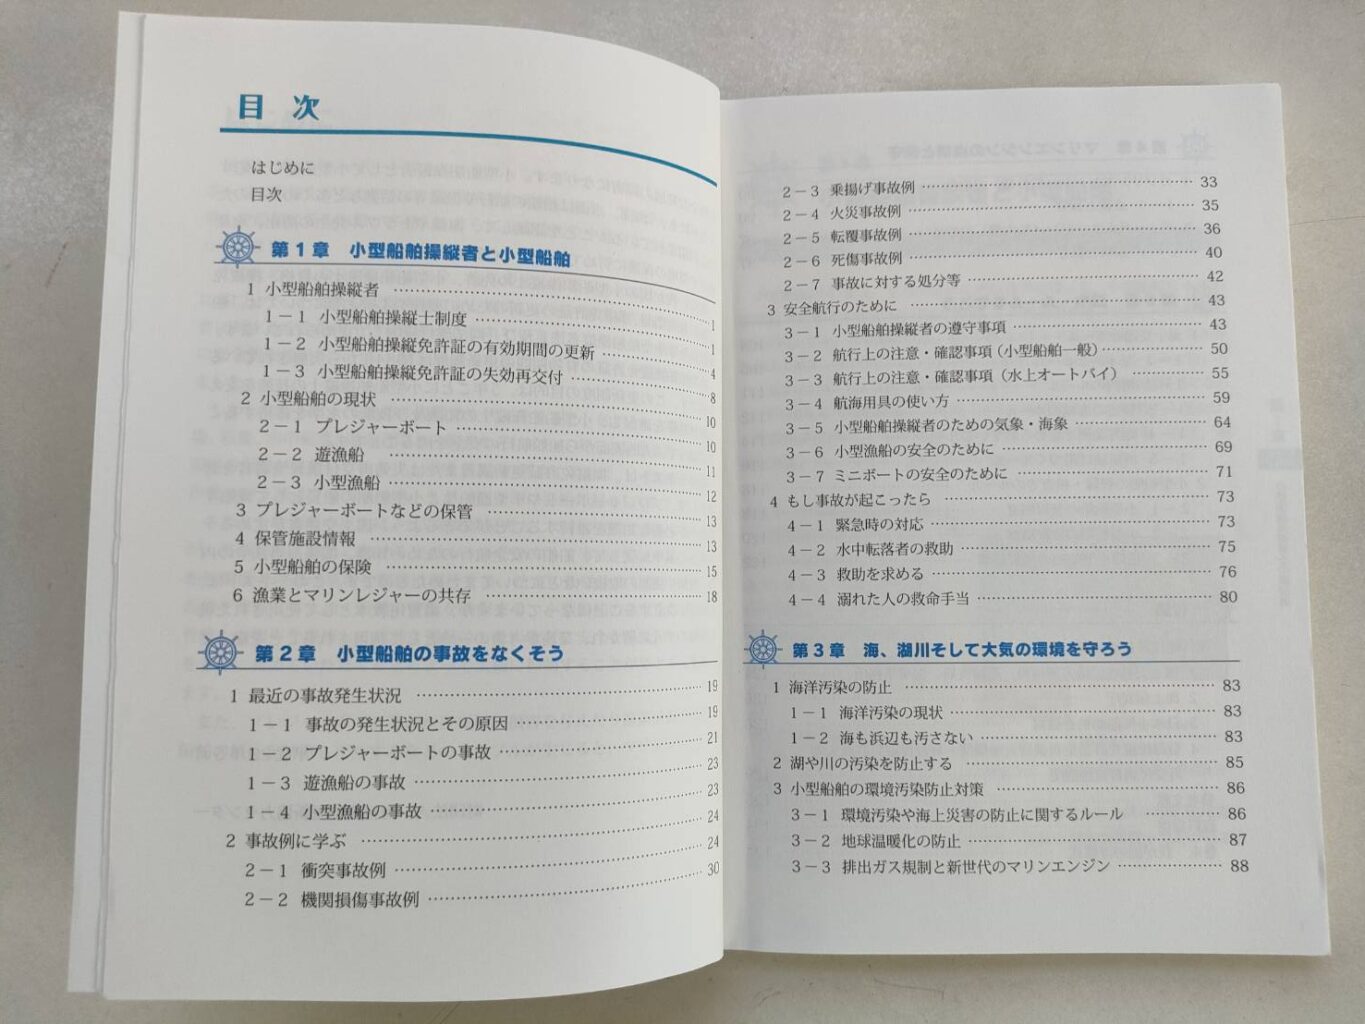 目次
はじめに
目次
第1章 小型船舶操縦者と小型船舶
1 小型船舶操縦者 …… 1
1－1 小型船舶操縦士制度 …… 1
1－2 小型船舶操縦免許証の有効期間の更新 …… 4
1－3 小型船舶操縦免許証の失効再交付 …… 8
2 小型船舶の現状 …… 10
2－1 プレジャーボート …… 10
2－2 遊漁船 …… 11
2－3 小型漁船 …… 12
3 プレジャーボートなどの保管 …… 13
4 保管施設情報 …… 13
5 小型船舶の保険 …… 15
6 漁業とマリンレジャーの共存 …… 18
第2章 小型船舶の事故をなくそう
1 最近の事故発生状況 …… 19
1－1 事故の発生状況とその原因 …… 19
1－2 プレジャーボートの事故 …… 21
1－3 遊漁船の事故 …… 23
1－4 小型漁船の事故 …… 23
2 事故例に学ぶ …… 24
2－1 衝突事故例 …… 24
2－2 機関損傷事故例 …… 30
2－3 乗揚げ事故例 …… 33
2－4 火災事故例 …… 35
2－5 転覆事故例 …… 36
2－6 死傷事故例 …… 40
2－7 事故に対する処分等 …… 42
3 安全航行のために …… 43
3－1 小型船舶操縦者の遵守事項 …… 43
3－2 航行上の注意・確認事項（小型船舶一般） …… 50
3－3 航行上の注意・確認事項（水上オートバイ） …… 55
3－4 航海用具の使い方 …… 59
3－5 小型船舶操縦者のための気象・海象 …… 64
3－6 小型漁船の安全のために …… 69
3－7 ミニボートの安全のために …… 71
4 もし事故が起こったら …… 73
4－1 緊急時の対応 …… 73
4－2 水中転落者の救助 …… 75
4－3 救助を求める …… 76
4－4 溺れた人の救命手当 …… 80
第3章 海、湖川そして大気の環境を守ろう
1 海洋汚染の防止 …… 83
1－1 海洋汚染の現状 …… 83
1－2 海も浜辺も汚さない …… 83
2 湖や川の汚染を防止する …… 85
3 小型船舶の環境汚染防止対策 …… 86
3－1 環境汚染や海上災害の防止に関するルール …… 86
3－2 地球温暖化の防止 …… 87
3－3 排出ガス規制と新世代のマリンエンジン …… 88